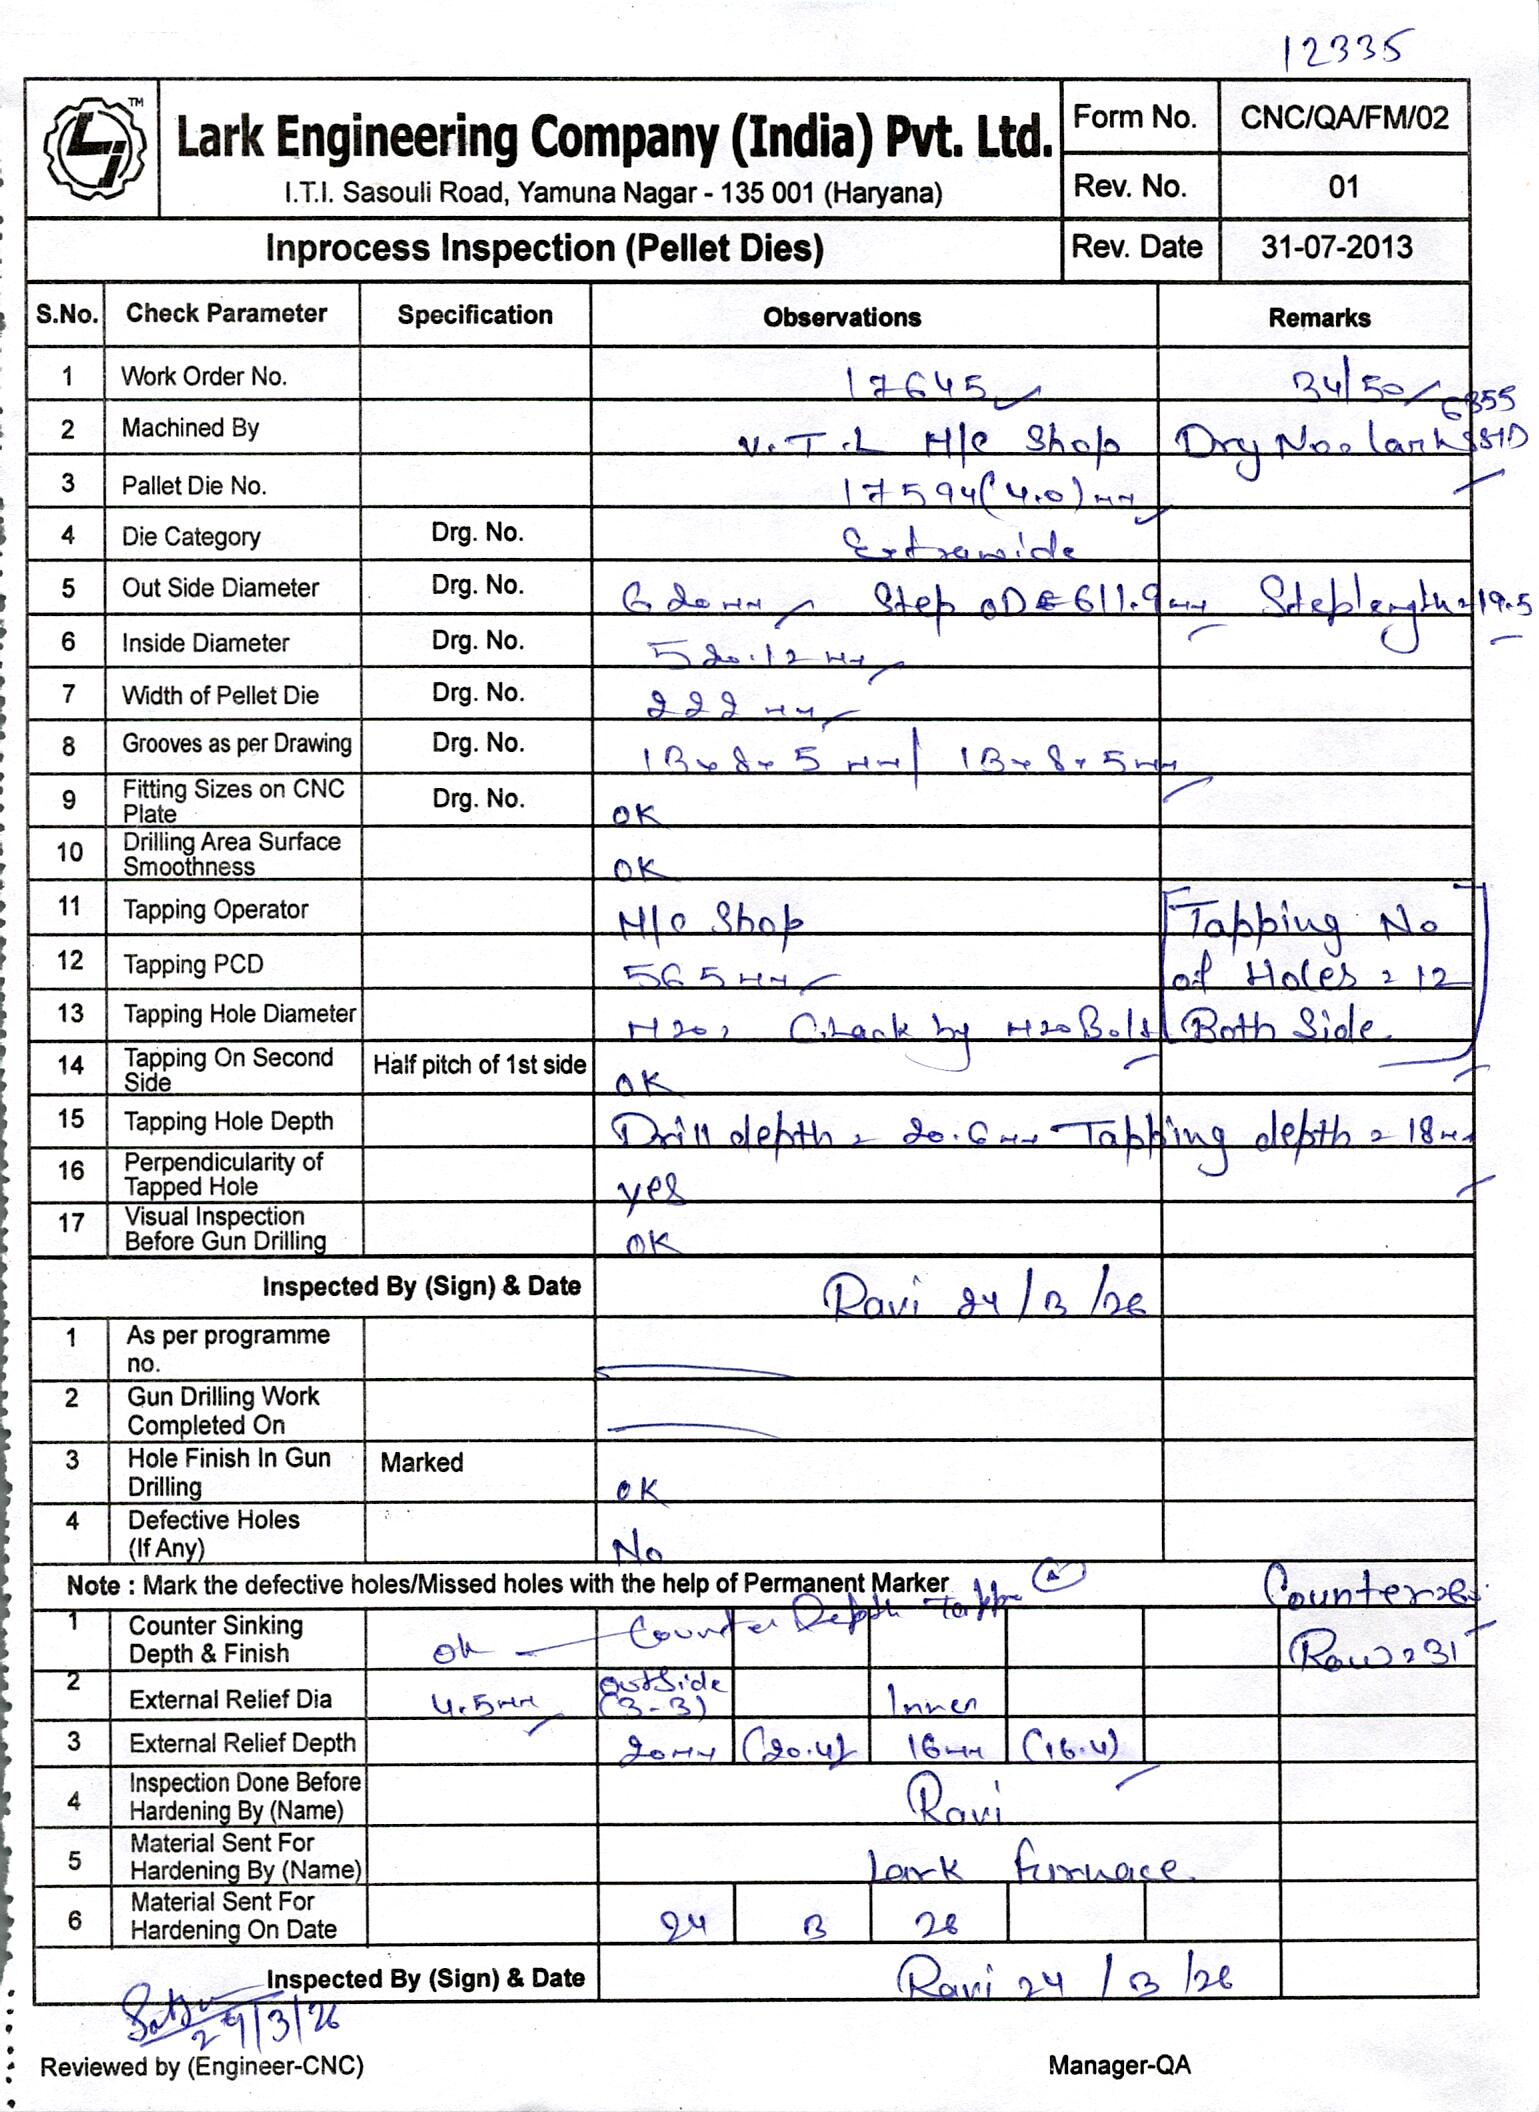 12335
TM
Lark Engineering Company (India) Pvt. Ltd.
I.T.I. Sasouli Road, Yamuna Nagar - 135 001 (Haryana)
Form No. CNC/QA/FM/02
Rev. No. 01
Inprocess Inspection (Pellet Dies)
Rev. Date 31-07-2013
S.No. Check Parameter Specification Observations Remarks
1 Work Order No. 17645 34/50
6355
2 Machined By V.T.L M/C Shop Drg No. lark STD
3 Pallet Die No. 17594 (4.0) mm
4 Die Category Drg. No. Extrawide
5 Out Side Diameter Drg. No. 620mm Step OD = 611.9mm Step length = 19.5
6 Inside Diameter Drg. No. 520.12 mm
7 Width of Pellet Die Drg. No. 222 mm
8 Grooves as per Drawing Drg. No. 13x8x5 mm / 13x8x5mm
9 Fitting Sizes on CNC Plate Drg. No. OK
10 Drilling Area Surface Smoothness OK
11 Tapping Operator M/C Shop Tapping No
12 Tapping PCD 565mm of Holes = 12
13 Tapping Hole Diameter M20, Check by M20 Bolt Both Side
14 Tapping On Second Side Half pitch of 1st side OK
15 Tapping Hole Depth Drill depth = 20.6mm Tapping depth = 18mm
16 Perpendicularity of Tapped Hole yes
17 Visual Inspection Before Gun Drilling OK
Inspected By (Sign) & Date Ravi 24/3/26
1 As per programme no.
2 Gun Drilling Work Completed On
3 Hole Finish In Gun Drilling Marked OK
4 Defective Holes (If Any) No
Note : Mark the defective holes/Missed holes with the help of Permanent Marker Counter
1 Counter Sinking Depth & Finish ok Counter Depth Row = 31
2 External Relief Dia 4.5mm outside (3-3) Inner
3 External Relief Depth 20mm (20.4) 16mm (16.4)
4 Inspection Done Before Hardening By (Name) Ravi
5 Material Sent For Hardening By (Name) Lark furnace
6 Material Sent For Hardening On Date 24 3 26
Inspected By (Sign) & Date Ravi 24/3/26
/3/26
Reviewed by (Engineer-CNC) Manager-QA